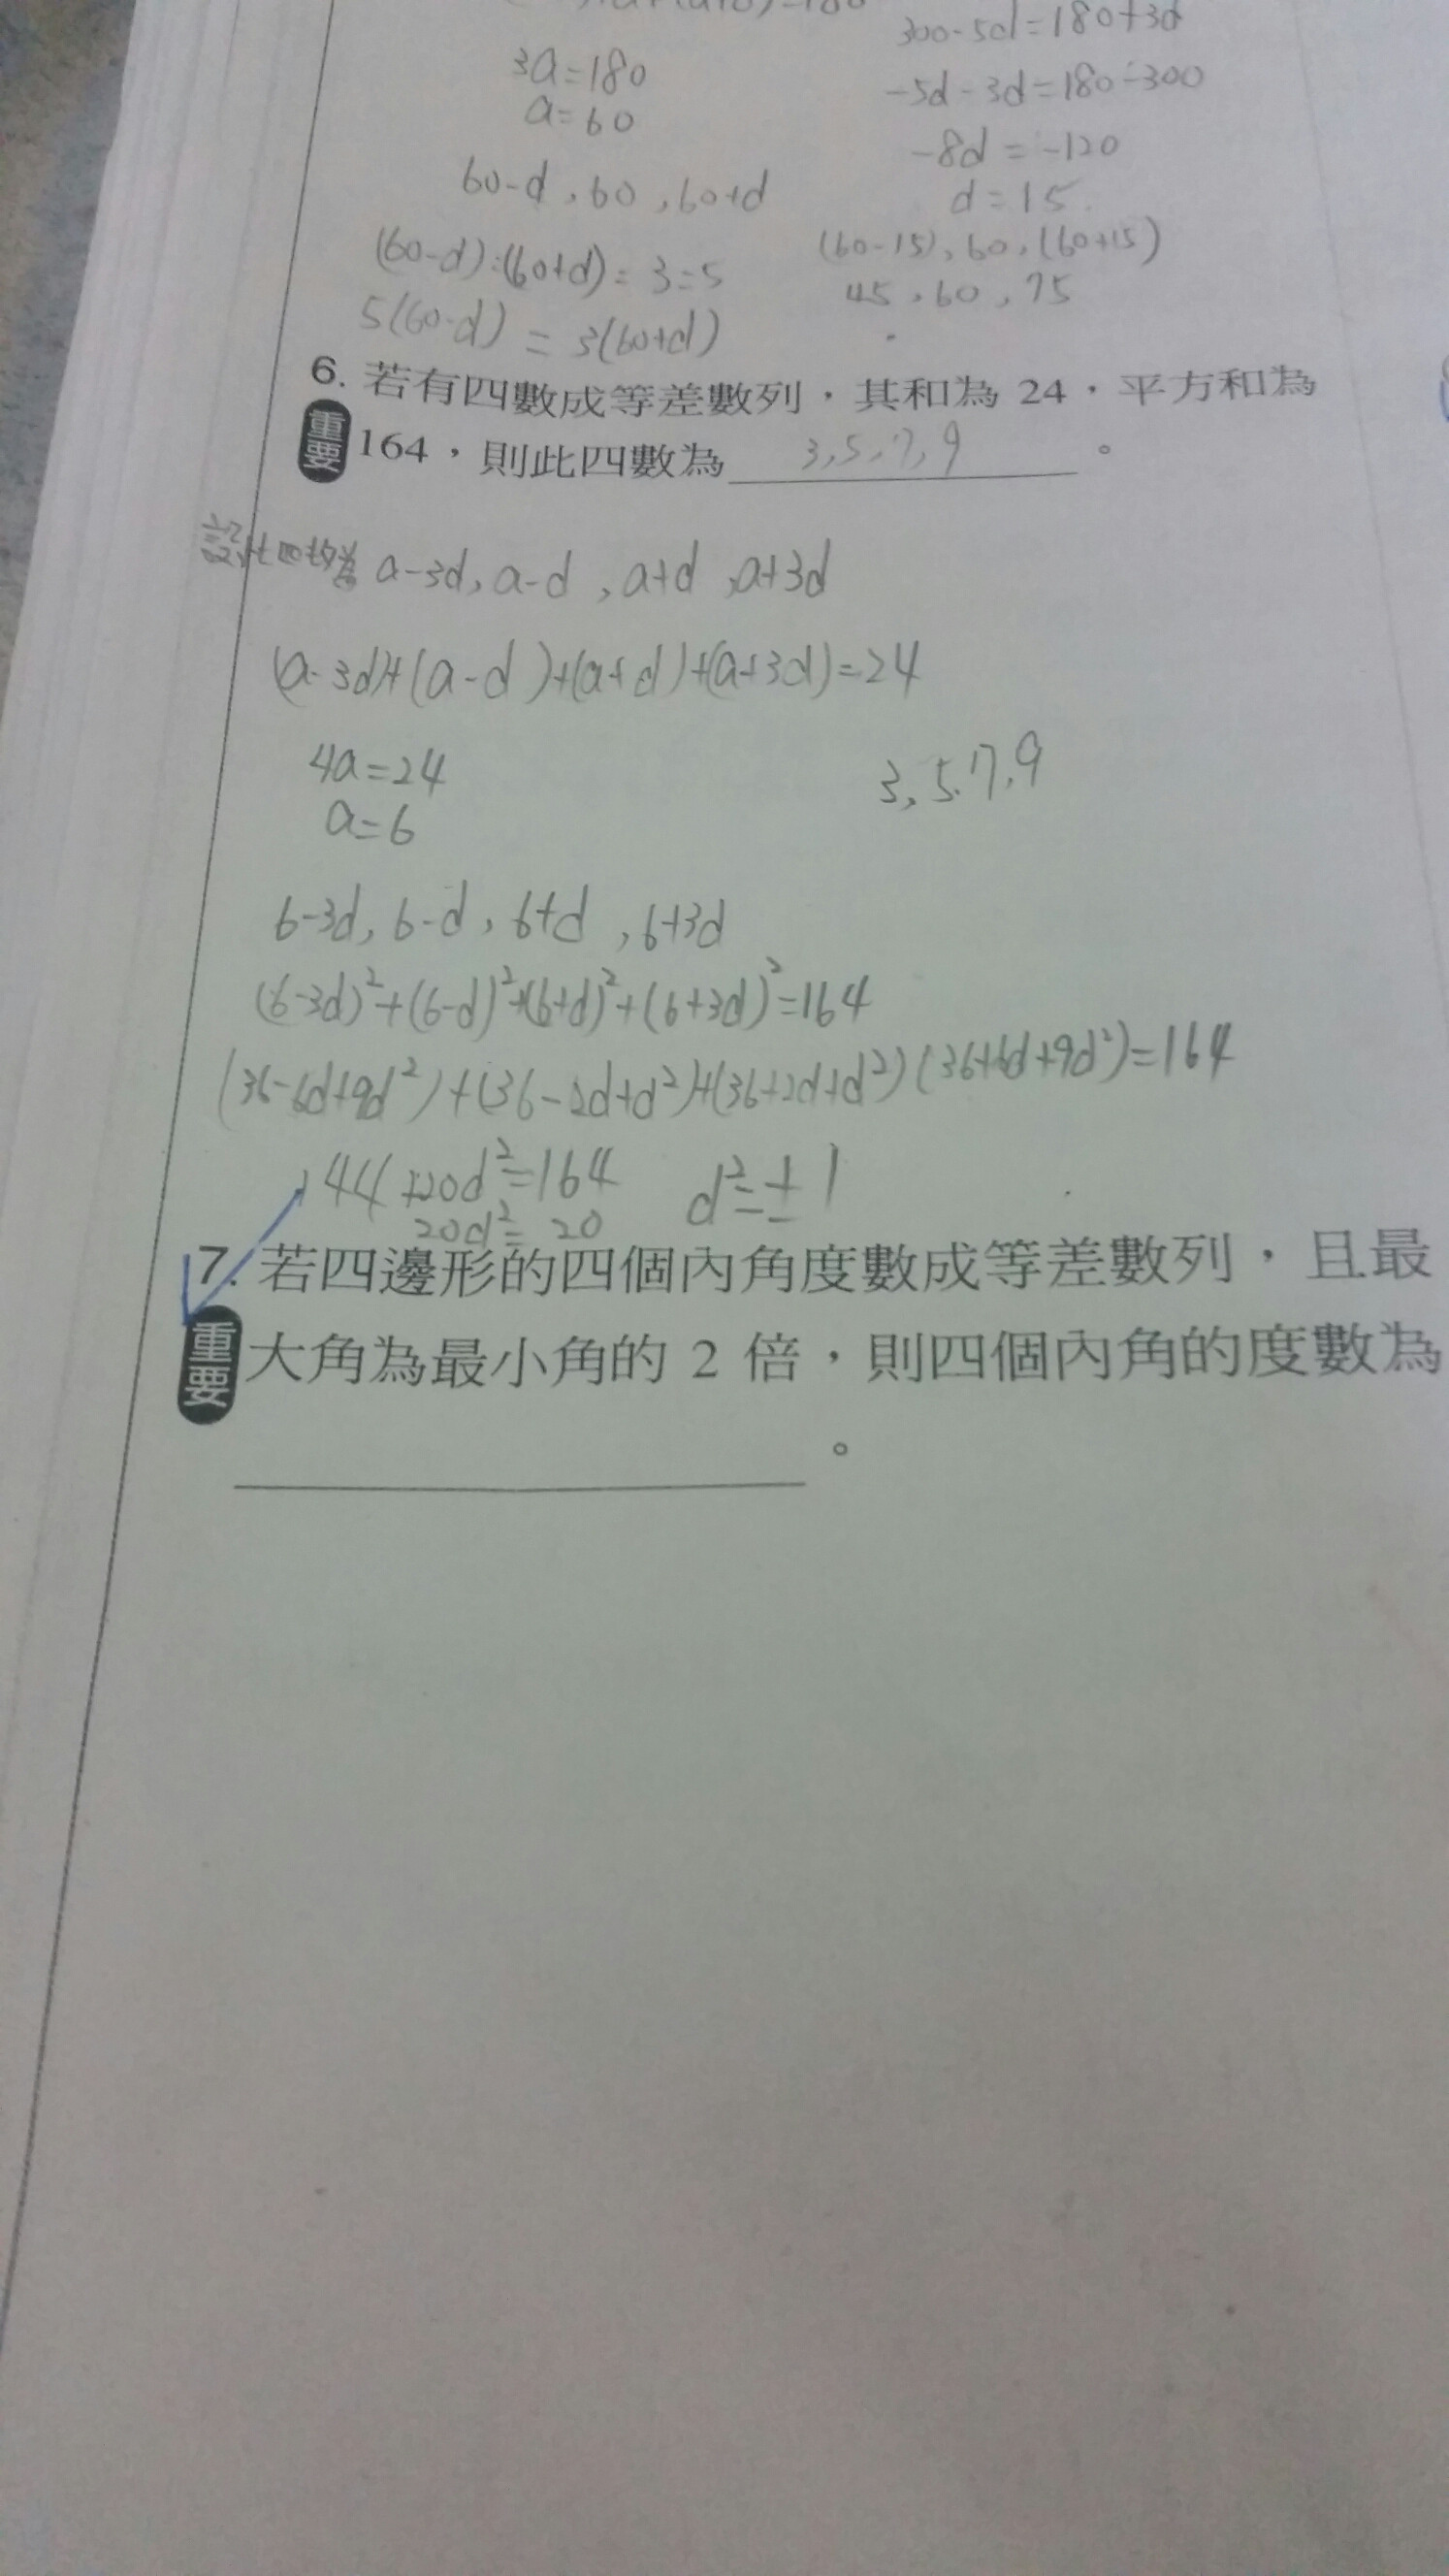 3a=180
a=60
60-d,60,60+d
(60-d):(60+d)=3=5
5(60-d)=3(60+d)
300-5d=180+3d
-5d-3d=180-300
-8d=-120
d=15.
(60-15),60,(60+15)
45,60,75
6. 若有四數成等差數列,其和為 24,平方和為
重要 164,則此四數為 3,5,7,9 。
a-3d,a-d,a+d,a+3d
(a-3d)+(a-d)+(a+d)+(a+3d)=24
4a=24
a=6
3,5.7,9
6-3d,6-d,6+d,6+3d
(6-3d)²+(6-d)²+(6+d)²+(6+3d)²=164
(36-6d+9d²)+(36-2d+d²)+(36+2d+d²)(36+6d+9d²)=164
144+20d²=164 d²=±1
20d²=20
7. 若四邊形的四個內角度數成等差數列,且最
重要 大角為最小角的 2 倍,則四個內角的度數為
。